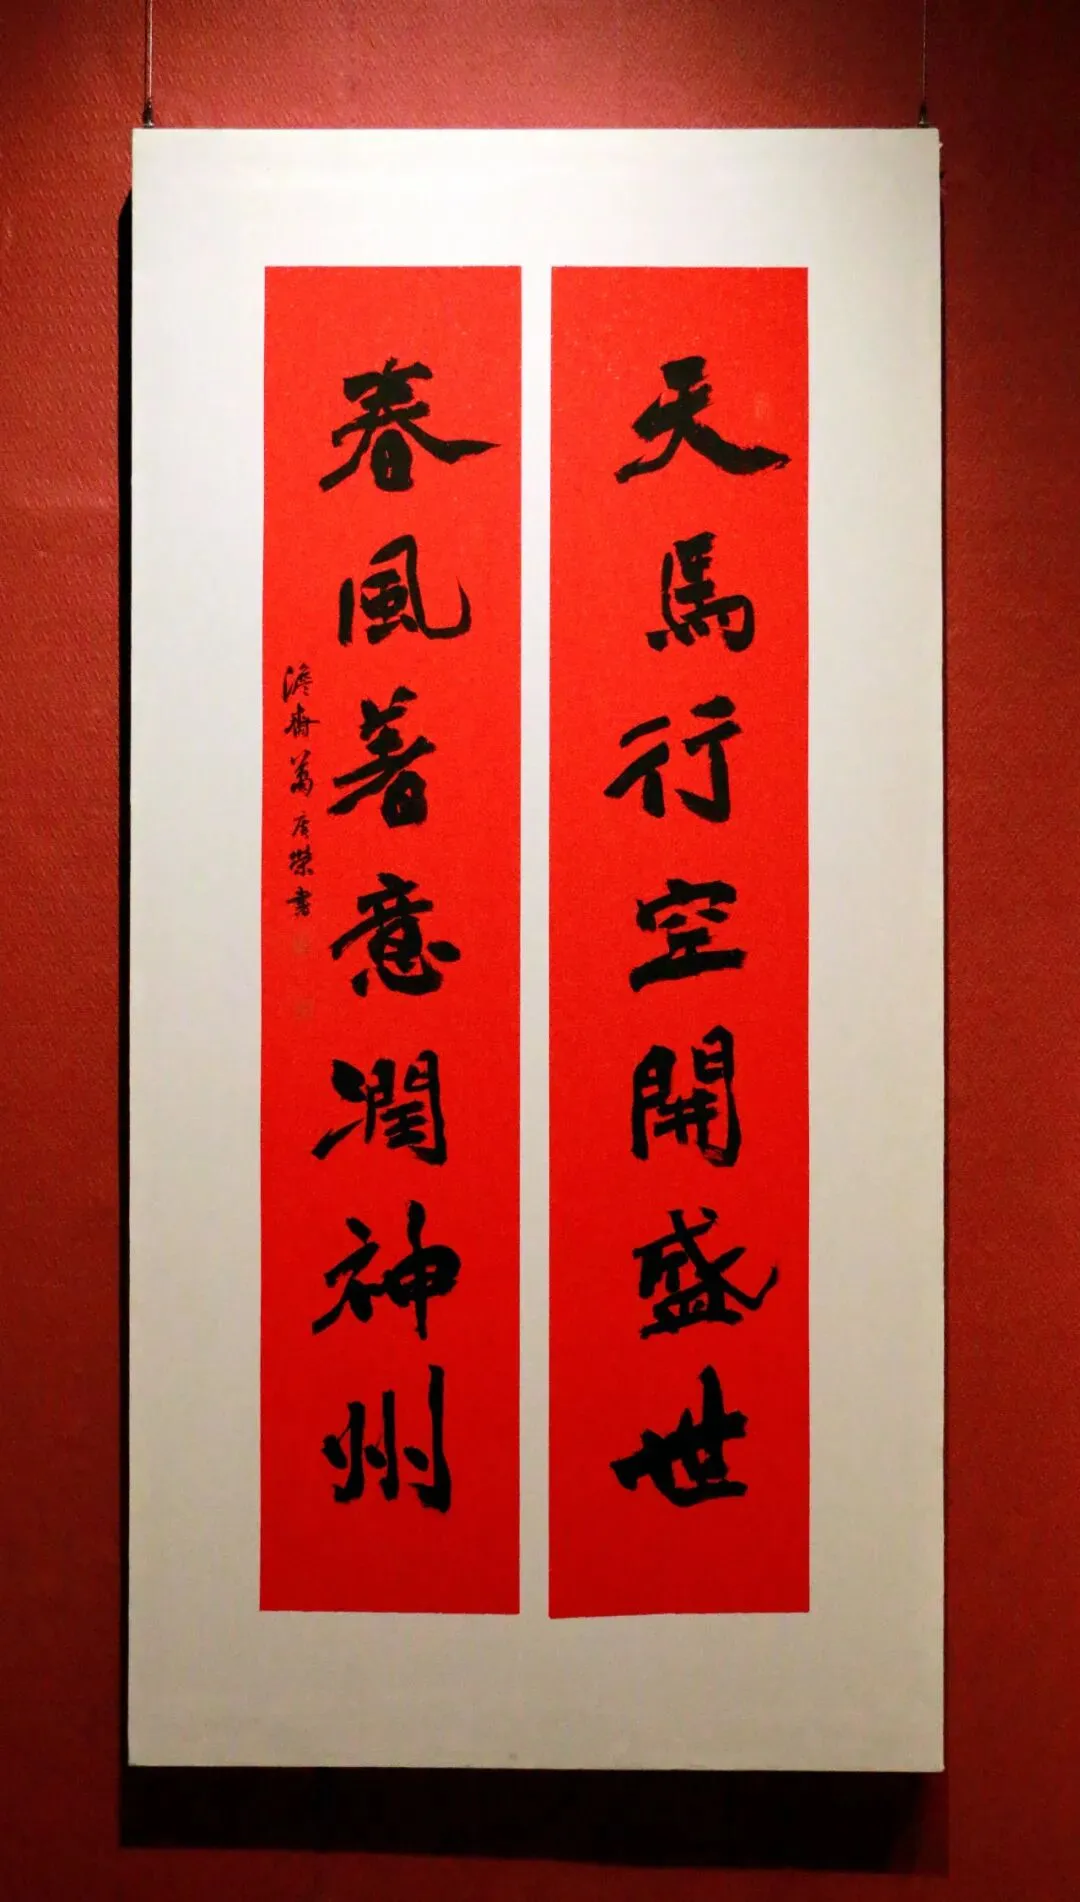 天馬行空開盛世
春風著意潤神州
澹齋萬庚榮書